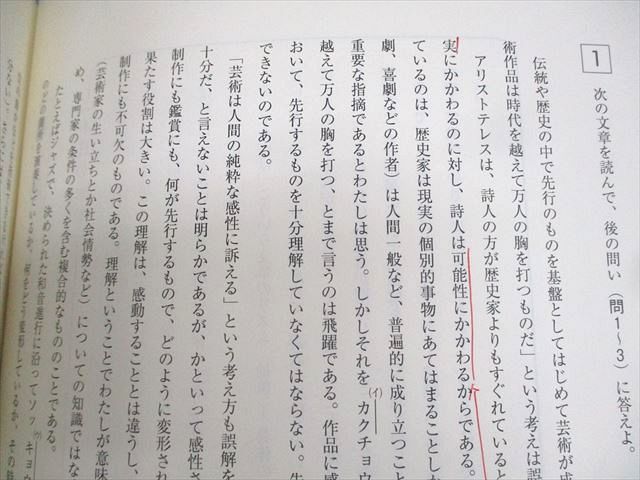 1 次の文章を読んで、後の問い(問1~3)に答えよ。
伝統や歴史の中で先行のものを基盤としてはじめて芸術が成
術作品は時代を越えて万人の胸を打つものだ」という考えは誤
アリストテレスは、詩人の方が歴史家よりもすぐれていると
実にかかわるのに対し、詩人は可能性にかかわるからである。
ているのは、歴史家は現実の個別的事物にあてはまることしか
劇、喜劇などの作者)は人間一般など、普遍的に成り立つこと
重要な指摘であるとわたしは思う。しかしそれを(イ)カクチョウ
越えて万人の胸を打つ、とまで言うのは飛躍である。作品に感
おいて、先行するものを十分理解していなくてはならない。
できないのである。
「芸術は人間の純粋な感性に訴える」という考え方も誤解を
十分だ、と言えないことは明らかであるが、かといって感性さ
制作にも鑑賞にも、何が先行するもので、どのように変形され
果たす役割は大きい。この理解は、感動することとは違うし、
制作にも不可欠のものである。理解ということでわたしが意味
(芸術家の生い立ちとか社会情勢など)についての知識ではな
め、専門家の条件の多くを含む複合的なもののことである。
たとえばジャズで、決められた和音進行に沿ってソッ(ウ)キョウ